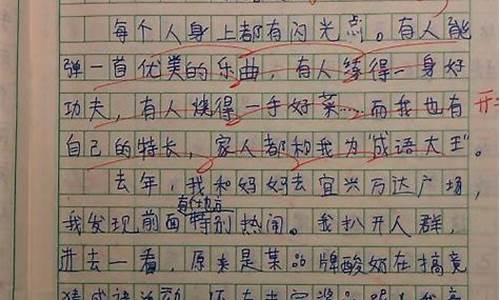 每个人身上都有闪光点。有人能
弹一首优美的乐曲，有人练得一身好
功夫，有人烧得一手好菜……而我也有
自己的特长，家人都称我为“成语大王”。
去年，我和妈妈去宜兴万达广场，
我发现前面有个地方特别热闹。我扒开人群，
进去一看，原来是某品牌酸奶在搞竞
猜成语活动